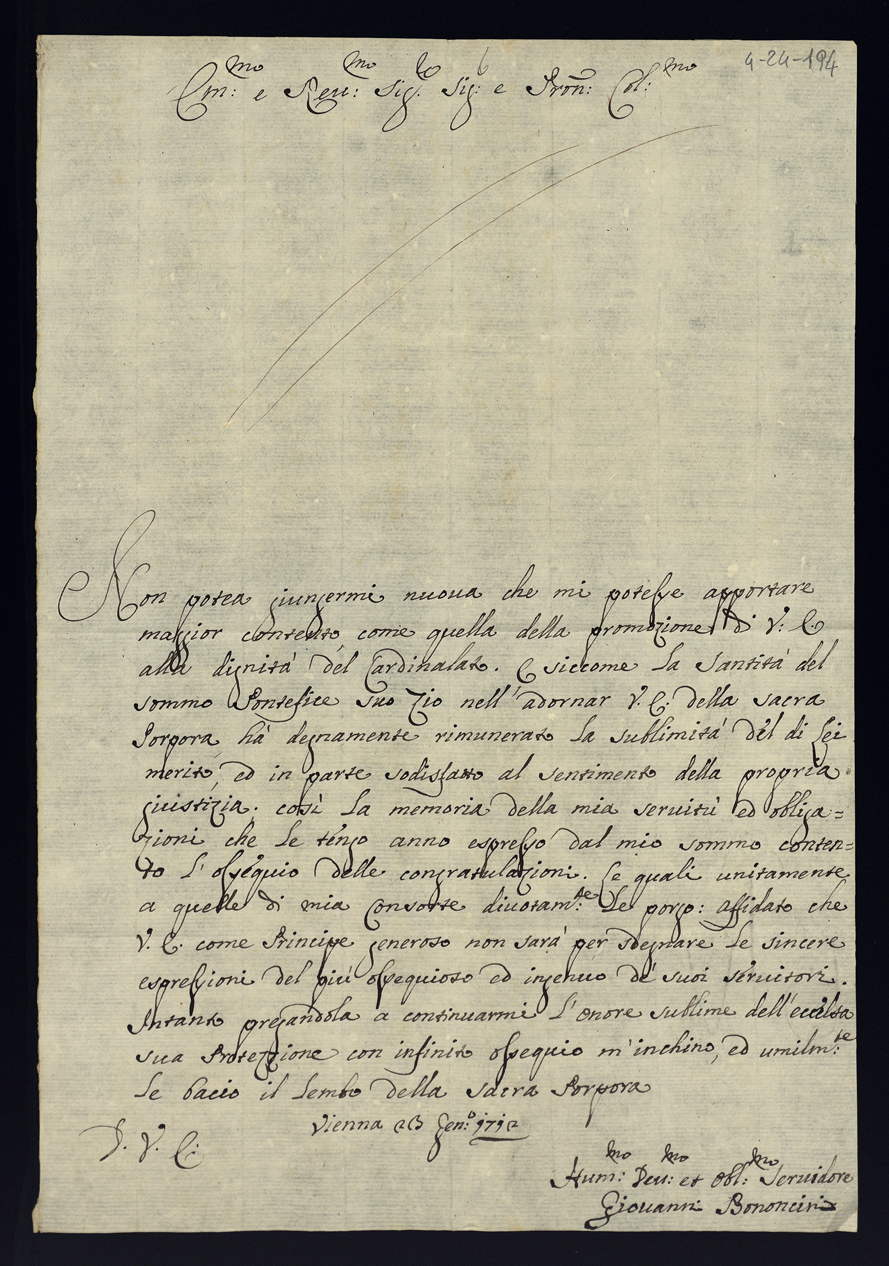 4-24-194
Em:mo e Reu:mo Sig:re Sig: e Pron: Col:mo
Non potea giungermi nuoua che mi potesse apportare
maggior contento come quella della promozione di V: E.
alla dignità del Cardinalato. E siccome la Santità del
sommo Pontefice suo Zio nell'adornar V. E: della sacra
Porpora hà degnamente rimunerato la sublimità del di Lei
merito, ed in parte sodisfatto al sentimento della propria
giustizia; così la memoria della mia seruitù ed obliga=
zioni che Le tengo anno espresso dal mio sommo conten=
to l'ossequio delle congratulazioni. Le quali unitamente
a quelle di mia Consorte diuotam:te Le porgo: affidato che
V. E. come Principe generoso non sarà per sdegnare le sincere
espressioni del più ossequioso ed ingenuo de' suoi seruitori.
Intanto pregandola a continuarmi l'onore sublime dell'eccelsa
sua Protezzione con infinito ossequio m'inchino, ed umilm:te
Le bacio il lembo della sacra Porpora
Vienna 23 Gen:o 1712
D. V. E:
Hum:mo Deu:mo et Obl:mo Seruidore
Giouanni Bononcini